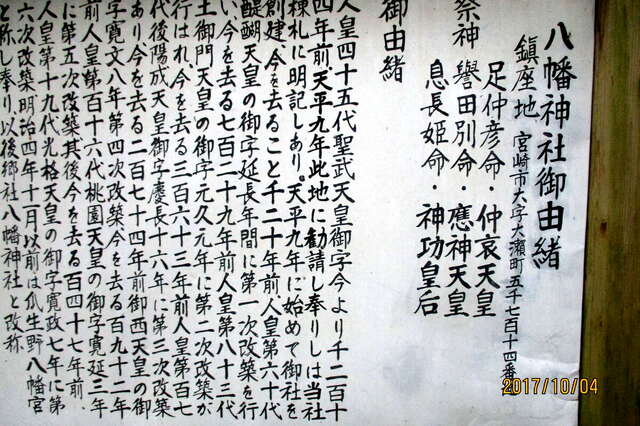 八幡神社御由緒
鎮座地 宮崎市大字大瀬町五千七百十四番
祭神
足仲彦命・仲哀天皇
譽田別命・應神天皇
息長姫命・神功皇后
御由緒
人皇四十五代聖武天皇御宇今より千二百十
四年前天平九年此地に勧請し奉りしは当社
棟札に明記しあり。天平九年に始めて御社を
創建、今を去ること千二十年前人皇第六十代
醍醐天皇の御宇延長年間に第一次改築を行
い、今を去る七百二十九年前人皇第八十三代
土御門天皇の御宇元久元年に第二次改築が
行はれ、今を去る三百六十三年前人皇第百七
代後陽成天皇御宇慶長十六年に第三次改築
あり、今を去る二百七十四年前御西天皇の御
宇寛文八年第四次改築今を去る百九十二年
前人皇第百十六代桃園天皇の御宇寛延三年
に第五次改築其後今を去る百四十七年前、
人皇第百十九代光格天皇の御宇寛政七年に第
六次改築明治四年十一月以前は瓜生野八幡宮
と称し奉り以後郷社八幡神社と改称
2017/10/04